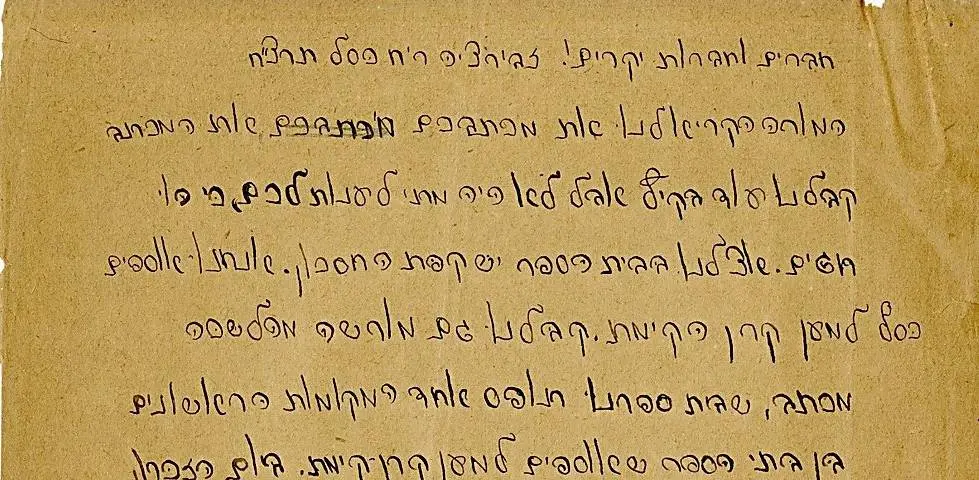 חברים וחברות יקרים! הרצליה ר"ח כסל תרצ"ח
המורה הקריא לנו את מכתבכם מכתבכם את המכתב
קבלנו עוד בקיץ אבל לא היה מתי לענות לכם, כי היו
חגים. אצלנו בבית הספר יש קפת החסכון. אנחנו אוספים
כסף למען קרן הקימת. קבלנו גם מורשה מהלשכה
מכתב, שבית ספרנו תופס אחד המקומות הראשונים
בין בתי הספר שאוספים למען קרן-קימת. ביום הזכרון